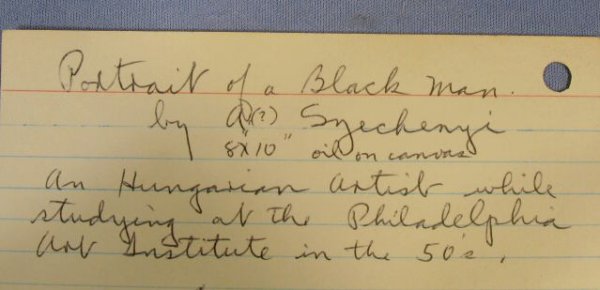 Portrait of a Black Man.
by A(?) Szechenyi
8"x10" oil on canvas
An Hungarian Artist while
studying at the Philadelphia
Art Institute in the 50's,